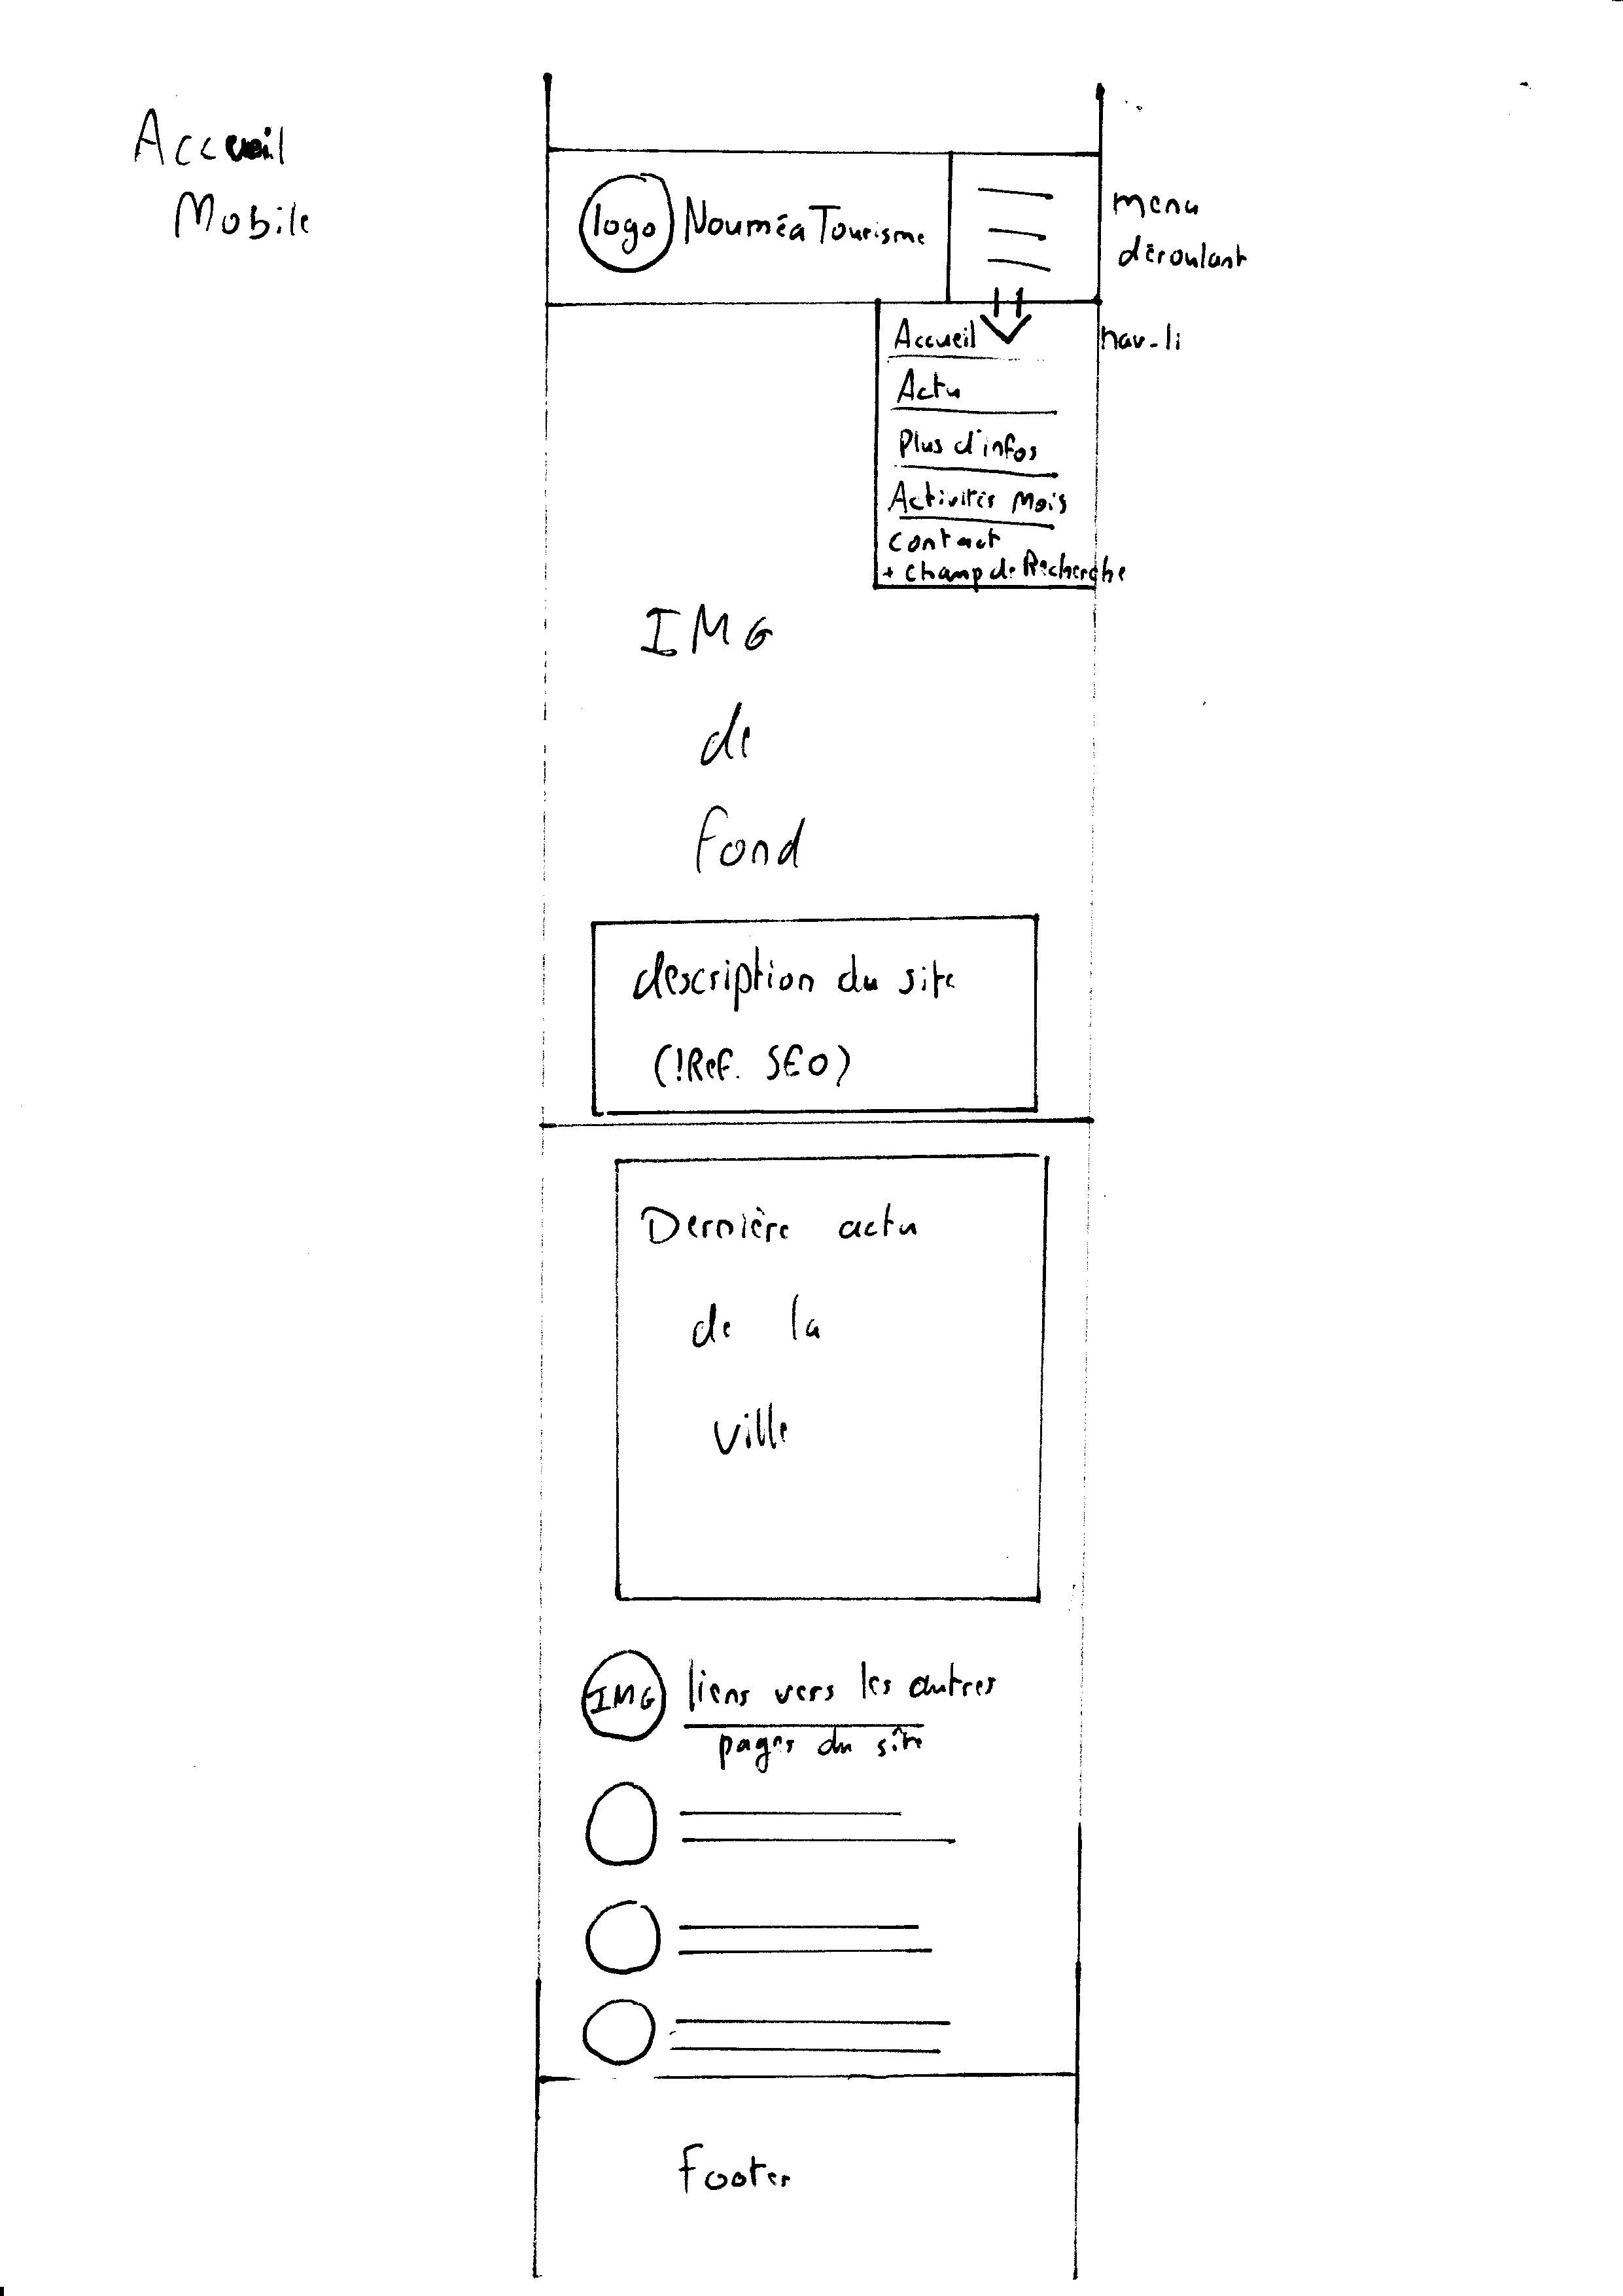 Accueil
Mobile
logo
Nouméa Tourisme
menu
déroulant
nav-li
Accueil
Actu
Plus d'infos
Activités Mois
Contact
+ champ de Recherche
IMG
de
fond
description du site
(!Ref. SEO)
Dernière actu
de la
ville
IMG
liens vers les autres
pages du site
Footer